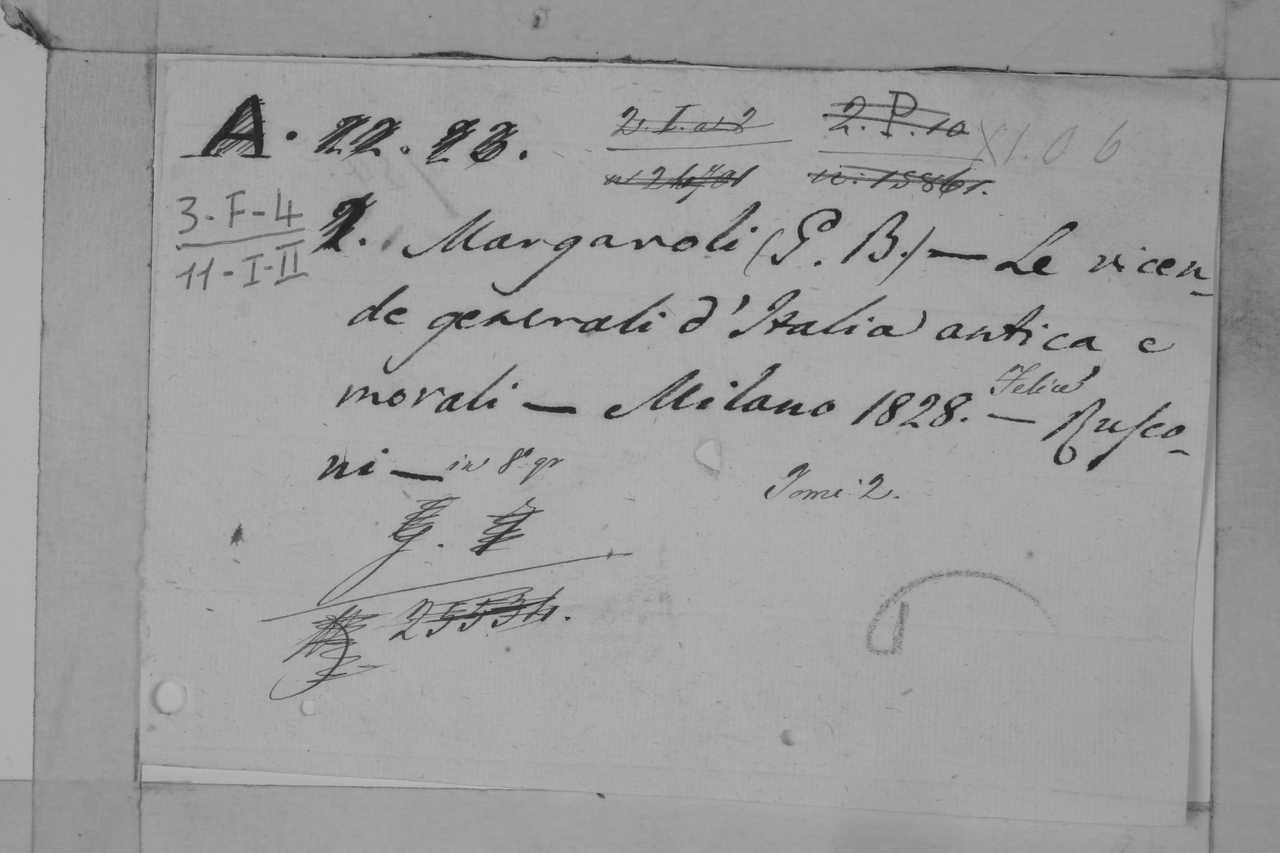 A. 22. 23. 2. I. a 2 2. P. 10 XI. 0 6
n: 15861.
3-F-4
11-I-II
2. Margaroli (G. B.) — Le vicen-
de generali d'Italia antica e
morali — Milano 1828. — Felice Rusco-
ni — in 8° gr
Tomi 2.
G.
25534.